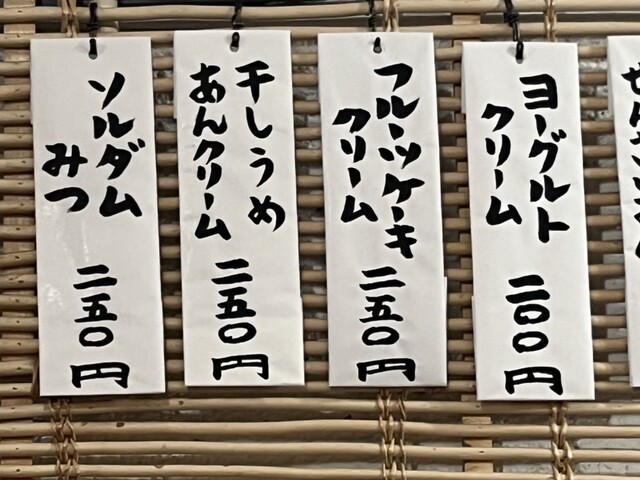 ヨーグルト
クリーム
二〇〇円
フルーツケーキ
クリーム
二五〇円
干しうめ
あんクリーム
二五〇円
ソルダム
みつ
二五〇円